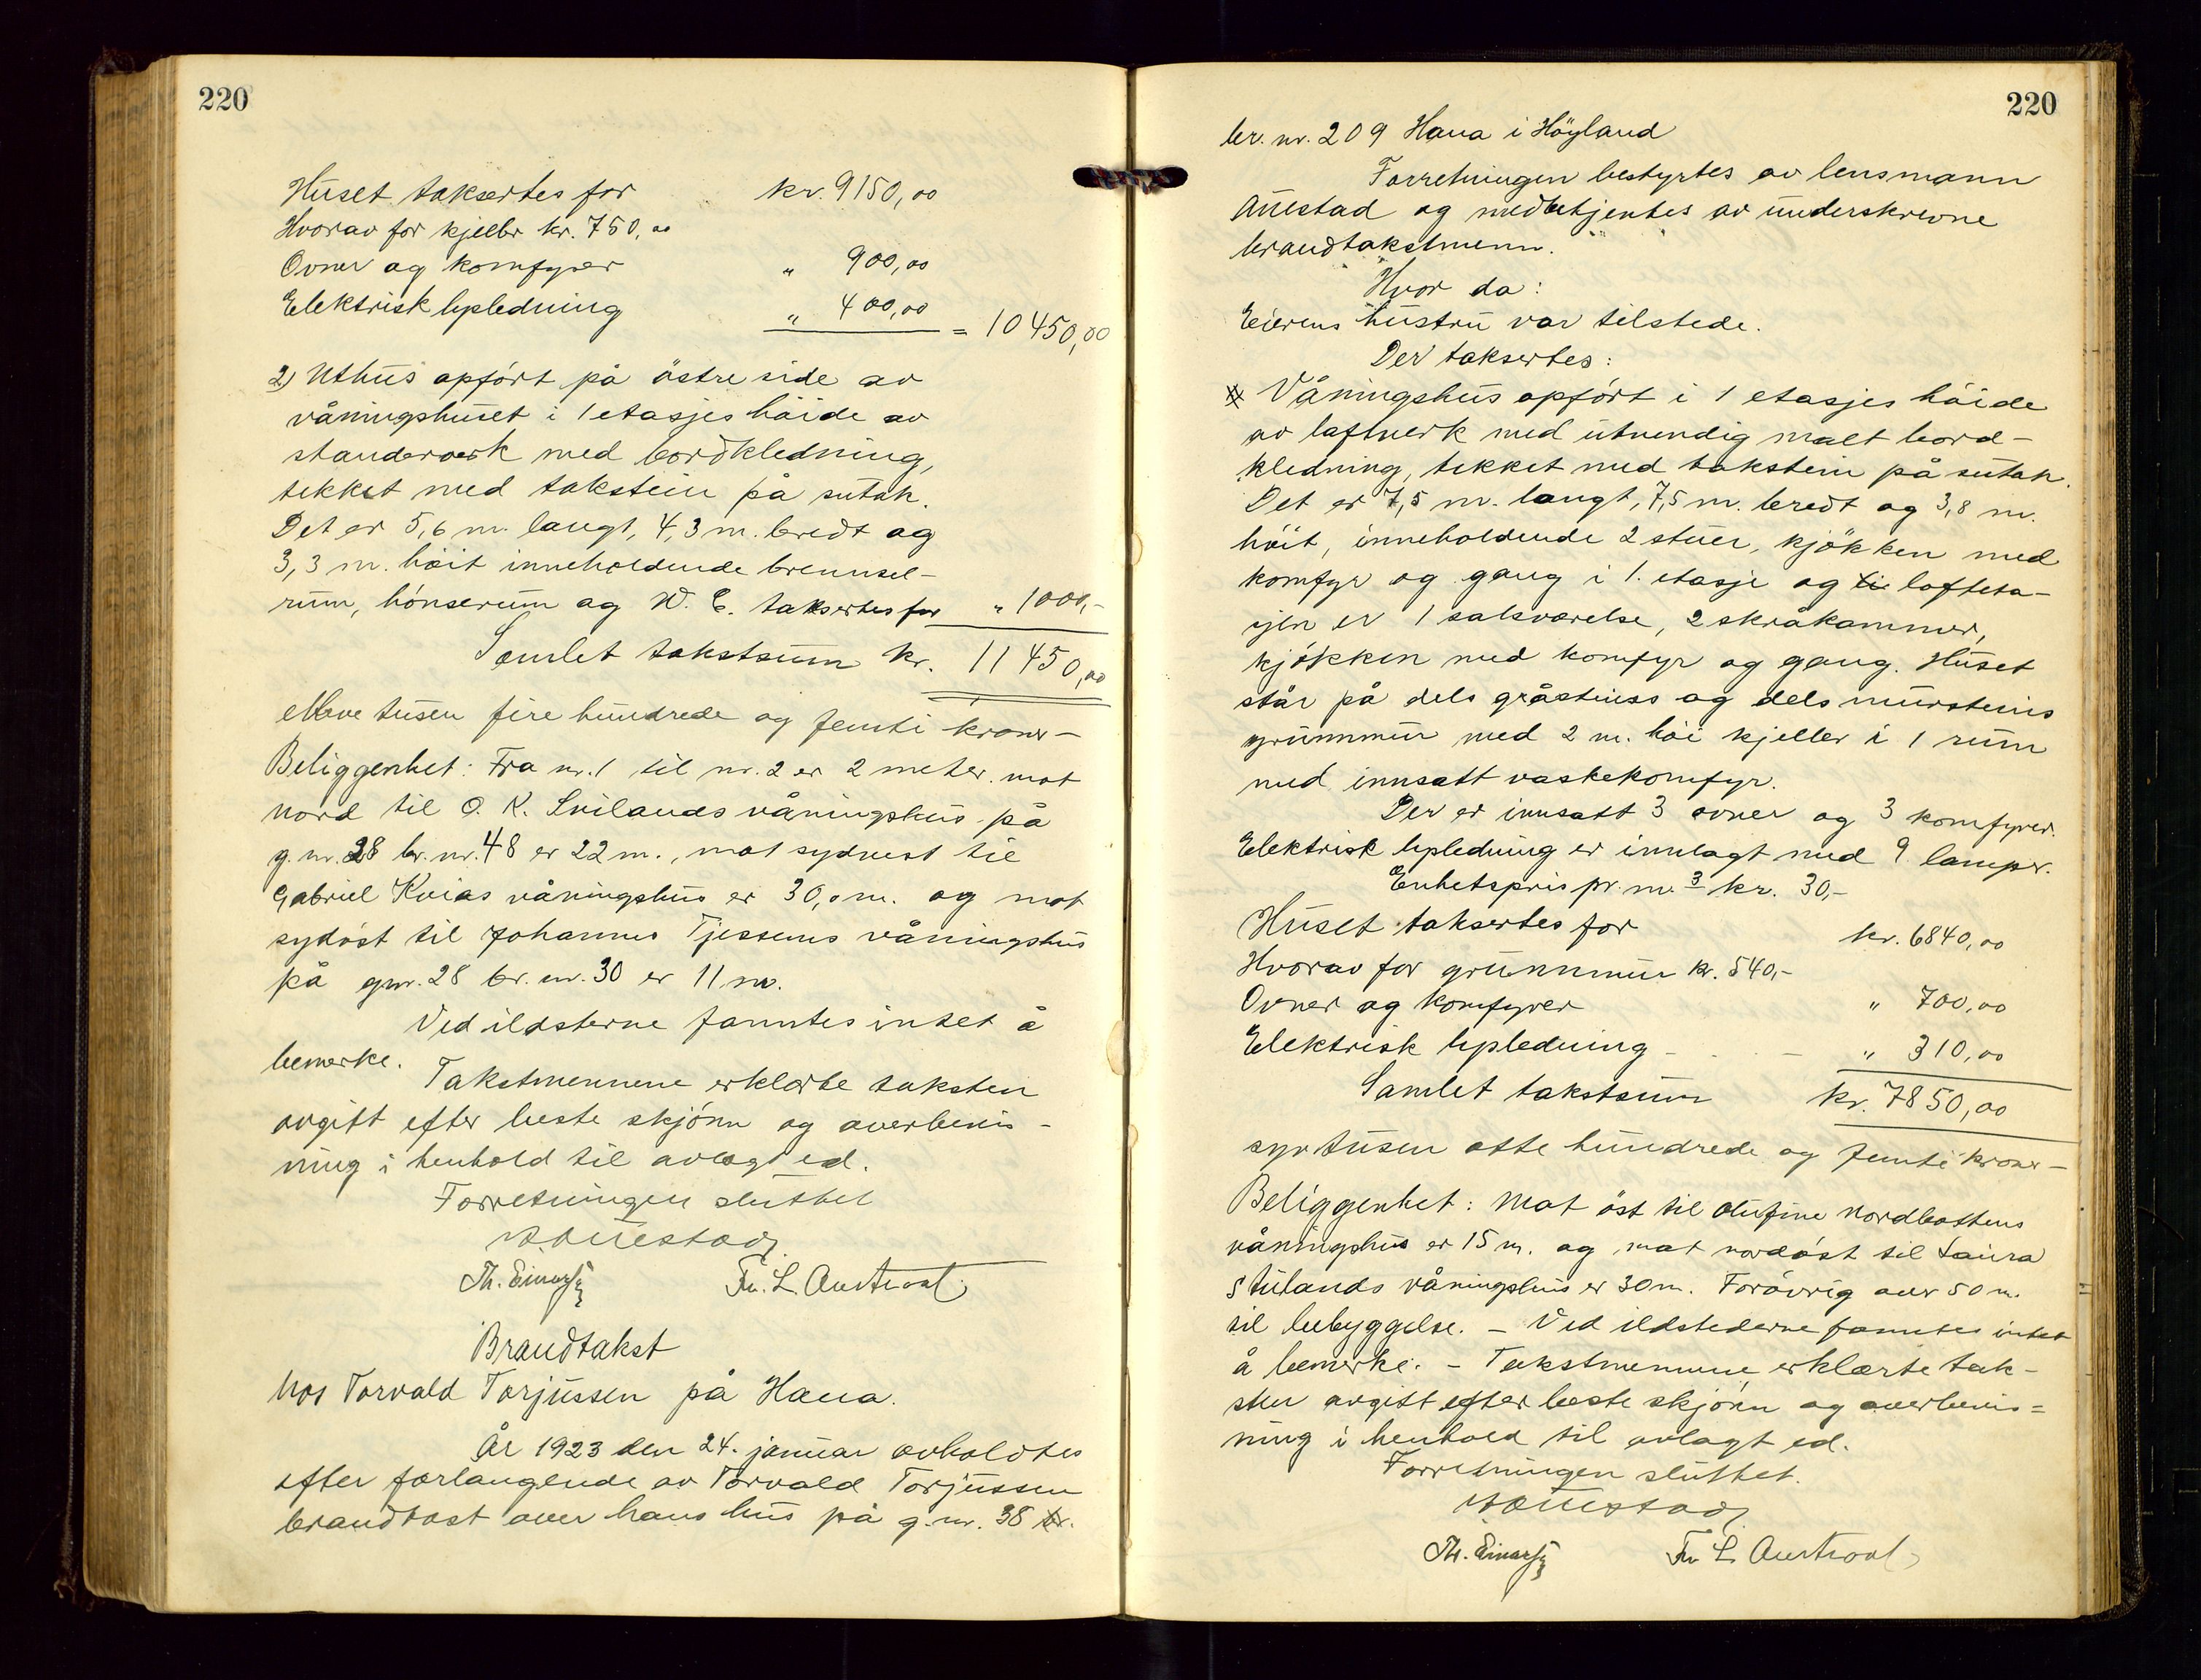 220
Huset taksertes for kr. 9150,00
Hvorav for kjeller kr. 750,00
Ovner og komfyrer " 900,00
Elektrisk opledning " 400,00 = 10450,00
2) Uthus opført på östre side av
våningshuset i 1 etasjes höide av
standerverk med bordkledning,
tekket med takstein på sutak.
Det er 5,6 m. langt, 4,3 m. bredt og
3,3 m. höit inneholdende brennsel-
rum, hönserum og W. C. taksertes for " 1000,-
Samlet takstsum kr. 11450,00
elleve tusen fire hundrede og femti kroner -
Beliggenhet: Fra nr. 1 til nr. 2 er 2 meter. mot
nord til O. K. Svilands våningshus på
g. nr. 28 br. nr. 48 er 22 m., mot sydvest til
Gabriel Kvias våningshus er 30,0 m. og mot
sydöst til Johannes Tjessems våningshus
på gnr. 28 br. nr. 30 er 11 m.
Ved ildsterne fanntes intet å
bemerke.
Takstmennene erklærte taksten
avgitt efter beste skjönn og overbevis-
ning i henhold til avlagt ed.
Forretningen sluttet
Auestad
Th. Einarsen Fr. L. Austrat
Brandtakst
hos Torvald Torjussen på Hana.
År 1923 den 24. januar avholdtes
efter forlangende av Torvald Torjussen
brandtast over hans hus på g. nr. 38 br.
220
br. nr. 209 Hana i Höyland
Forretningen bestyrtes av lensmann
Auestad og medbetjentes av underskrevne
brandtakstmenn.
Hvor da:
Eierens hustru var tilstede.
Der taksertes:
Våningshus opfört i 1 etasjes höide
av laftverk med utvendig malt bord-
kledning, tekket med takstein på sutak.
Det er 7,5 m. langt, 7,5 m. bredt og 3,8 m.
höit, inneholdende 2 stuer, kjökken med
komfyr og gang i 1. etasje og i lofteta-
sjen er 1 salsværelse, 2 skråkammer,
kjökken med komfyr og gang. Huset
står på dels gråsteins og dels mursteins
grunnmur med 2 m. höi kjeller i 1 rum
med innsatt vaskekomfyr.
Der er innsatt 3 ovner og 3 komfyrer.
Elektrisk opledning er innlagt med 9 lamper.
Enhetspris pr. m.3 kr. 30,-
Huset taksertes for kr. 6840,00
Hvorav for grunnmur kr. 540,-
Ovner og komfyrer " 700,00
Elektrisk opledning - - - " 310,00
Samlet takstsum kr. 7850,00
syv tusen otte hundrede og femti kroner -
Beliggenhet: Mot öst til Olufine Nordbottens
våningshus er 15 m. og mot nordöst til Laura
Stulands våningshus er 30 m. Forövrig over 50 m.
til bebyggelse. - Ved ildstederne fanntes intet
å bemerke. - Takstmennene erklærte tak-
sten avgitt efter beste skjönn og overbevis=
ning i henhold til avlagt ed.
Forretningen sluttet.
Auestad
Th. Einarsen Fr L. Austrat